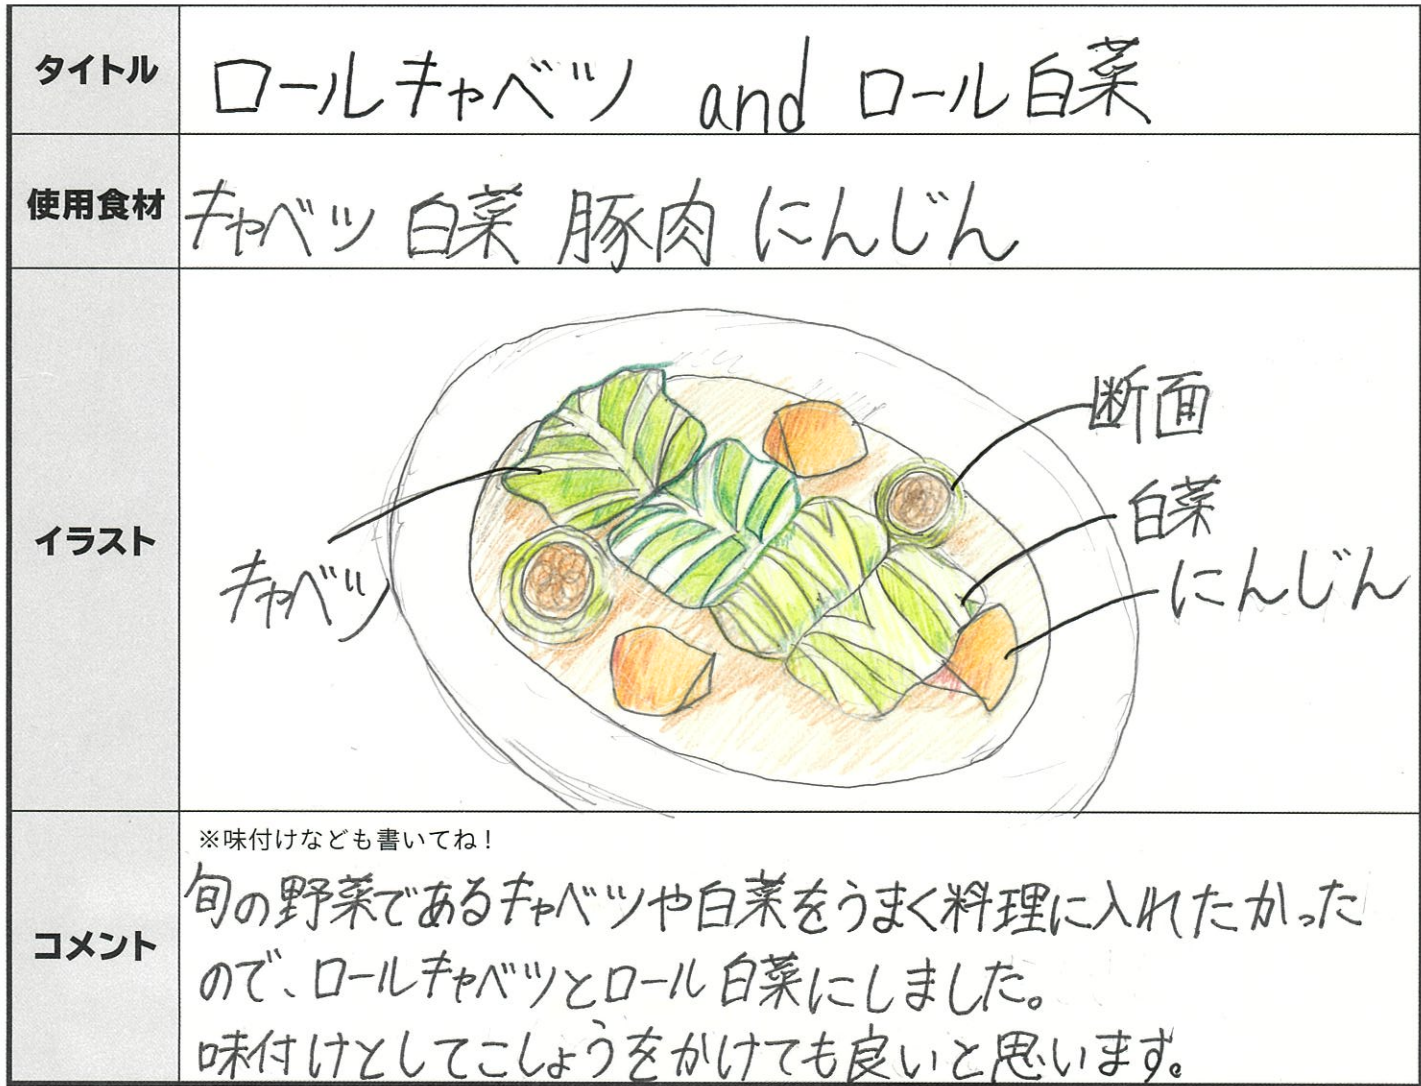 タイトル
ロールキャベツ and ロール白菜
使用食材
キャベツ 白菜 豚肉 にんじん
イラスト
断面
白菜
にんじん
キャベツ
コメント
※味付けなども書いてね！
旬の野菜であるキャベツや白菜をうまく料理に入れたかった
ので、ロールキャベツとロール白菜にしました。
味付けとしてこしょうをかけても良いと思います。